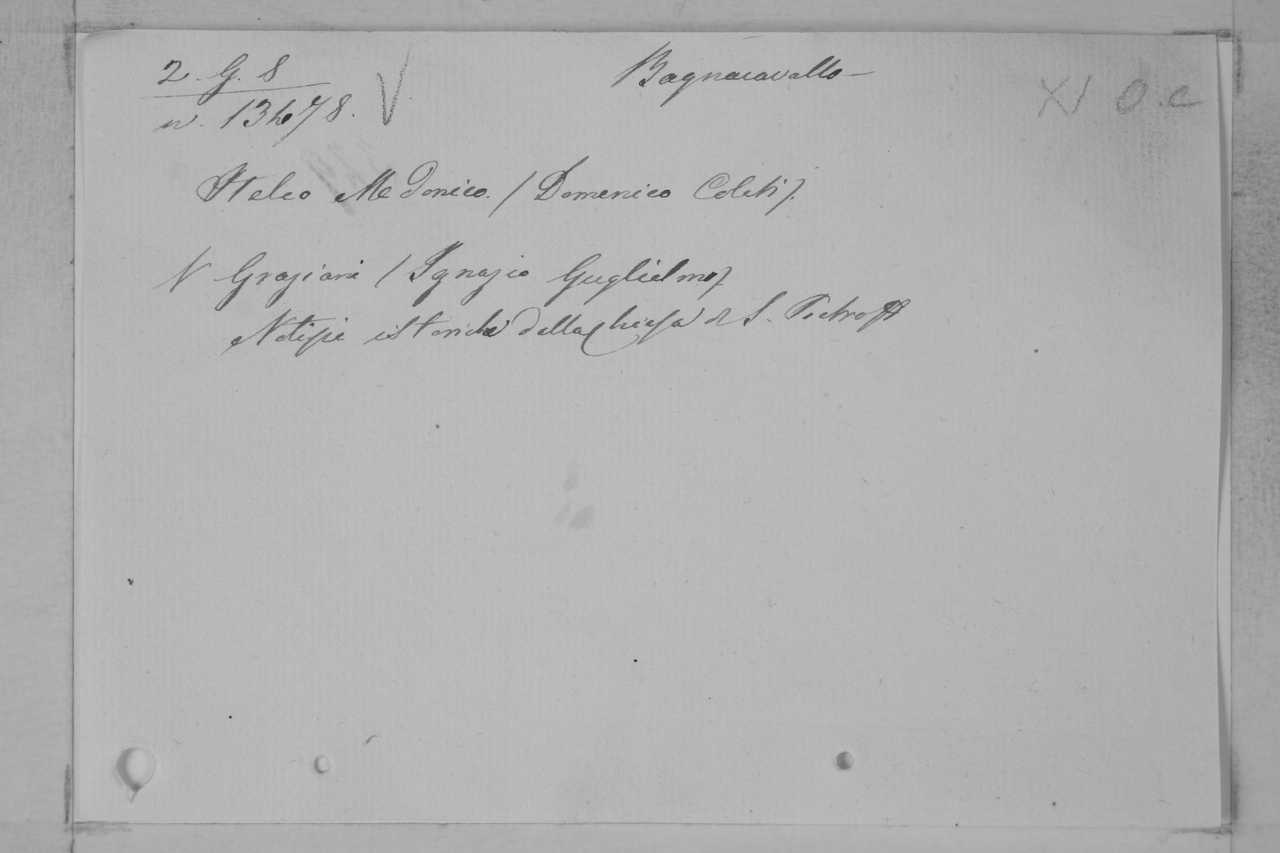 2. G. 8
Bagnacavallo
XI O.c
n. 13478. V
Italco Medonico. / Domenico Coleti /.
V Graziani / Ignazio Guglielmo /
Notizie istoriche della Chiesa di S. Pietro